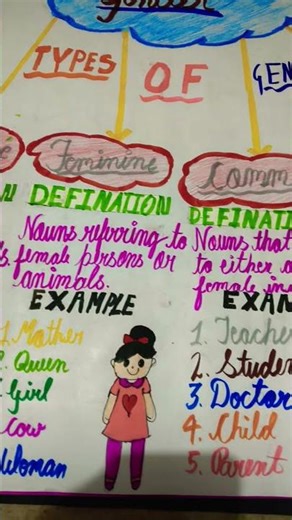 Gender
TYPES OF GEN
Feminine
DEFINATION
Nouns referring to
female persons or
animals.
EXAMPLE
1. Mother
2. Queen
Girl
Cow
Woman
Comm
DEFINATI
Nouns that
to either
female in
EXAM
1. Teacher
2. Studen
3. Doctor
4. Child
5. Parent